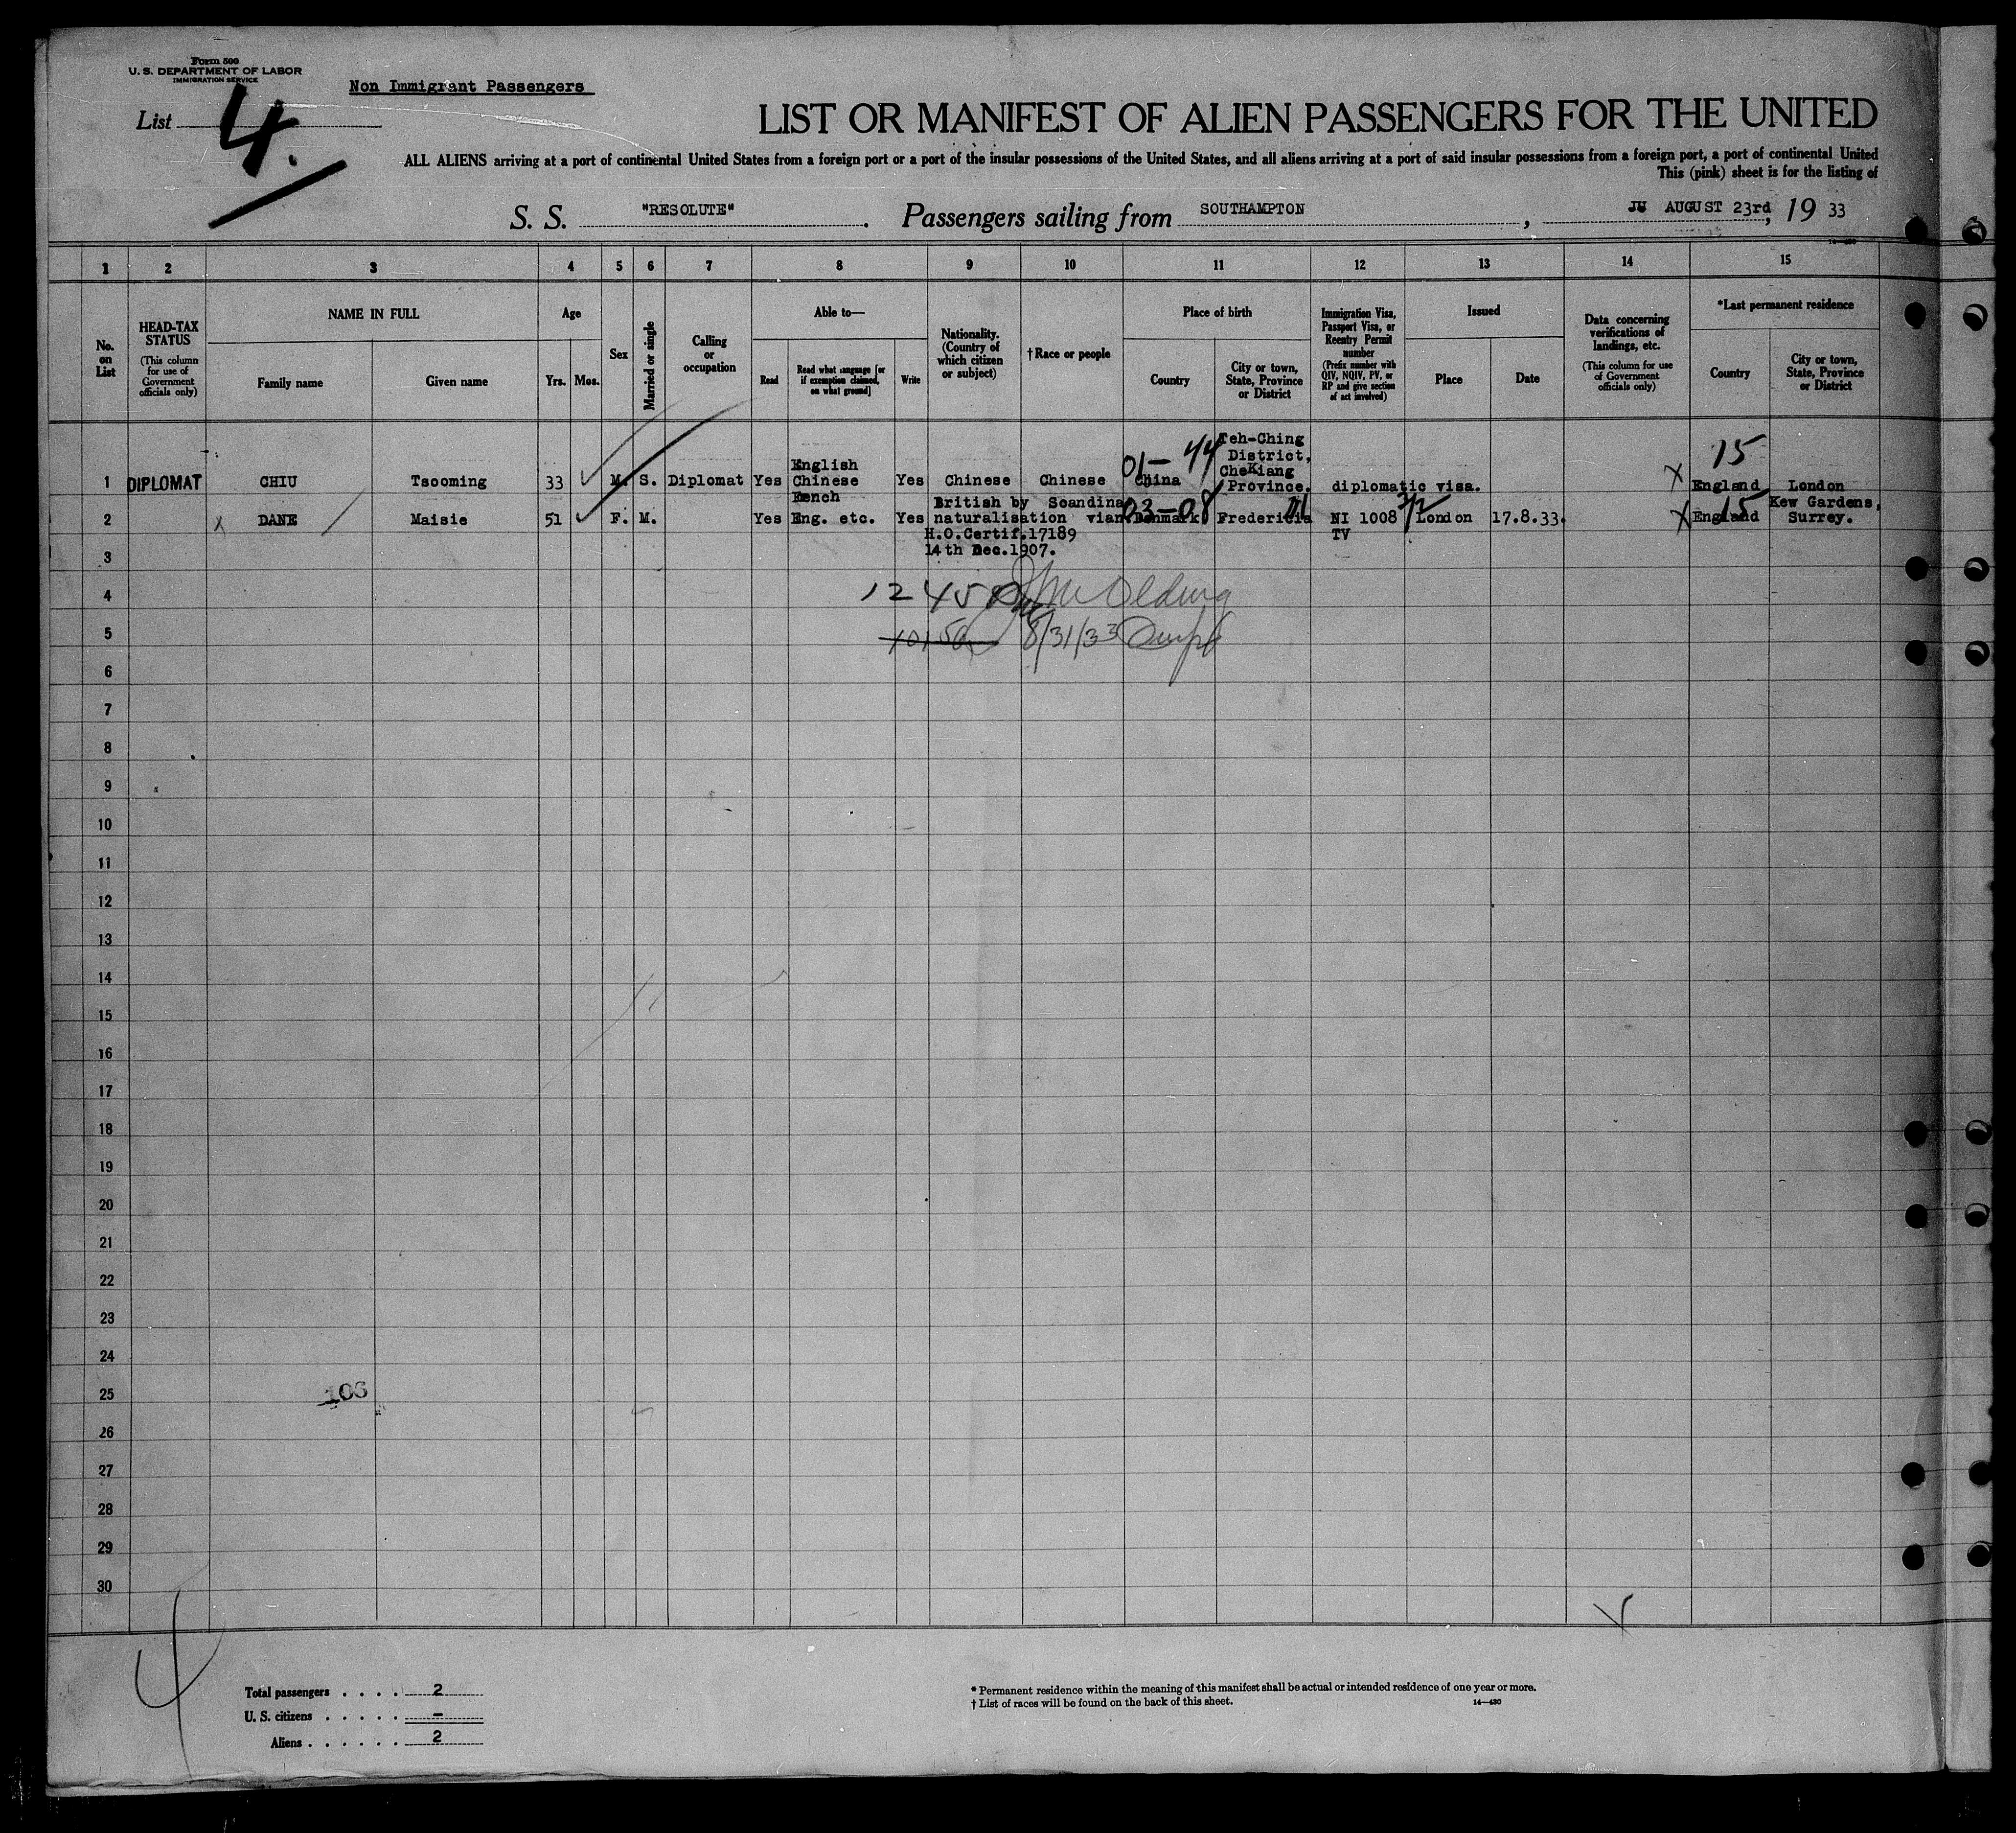 Form 500
U. S. DEPARTMENT OF LABOR
IMMIGRATION SERVICE
Non Immigrant Passengers
List 4.
LIST OR MANIFEST OF ALIEN PASSENGERS FOR THE UNITED
ALL ALIENS arriving at a port of continental United States from a foreign port or a port of the insular possessions of the United States, and all aliens arriving at a port of said insular possessions from a foreign port, a port of continental United
This (pink) sheet is for the listing of
S. S. "RESOLUTE". Passengers sailing from SOUTHAMPTON, AUGUST 23rd, 19 33
1 2 3 4 5 6 7 8 9 10 11 12 13 14 15
No. on List
HEAD-TAX STATUS
(This column for use of Government officials only)
NAME IN FULL
Family name
Given name
Age
Yrs. Mos.
Sex
Married or single
Calling or occupation
Able to—
Read
Read what language [or if exemption claimed, on what ground]
Write
Nationality. (Country of which citizen or subject)
†Race or people
Place of birth
Country
City or town, State, Province or District
Immigration Visa, Passport Visa, or Reentry Permit number
(Prefix number with QIV, NQIV, PV, or RP and give section of act involved)
Issued
Place
Date
Data concerning verifications of landings, etc.
(This column for use of Government officials only)
*Last permanent residence
Country
City or town, State, Province or District
1 DIPLOMAT CHIU Tsooming 33 M. S. Diplomat Yes English Chinese French Yes Chinese Chinese 01-44 China Teh-Ching District, CheKiang Province. diplomatic visa. X 15 England London
2 X DANE Maisie 51 F. M. Yes Eng. etc. Yes British by naturalisation Scandinavian 03-08 Denmark Fredericia NI 1008 London 17.8.33. X 15 England Kew Gardens, Surrey.
H.O.Certif.17189 TV
14th Dec.1907.
3
4 1245
5 8/31/33
6
7
8
9
10
11
12
13
14
15
16
17
18
19
20
21
22
23
24
25 106
26
27
28
29
30
4
Total passengers . . . . 2
U. S. citizens . . . . . –
Aliens . . . . . . 2
* Permanent residence within the meaning of this manifest shall be actual or intended residence of one year or more.
† List of races will be found on the back of this sheet. 14—430